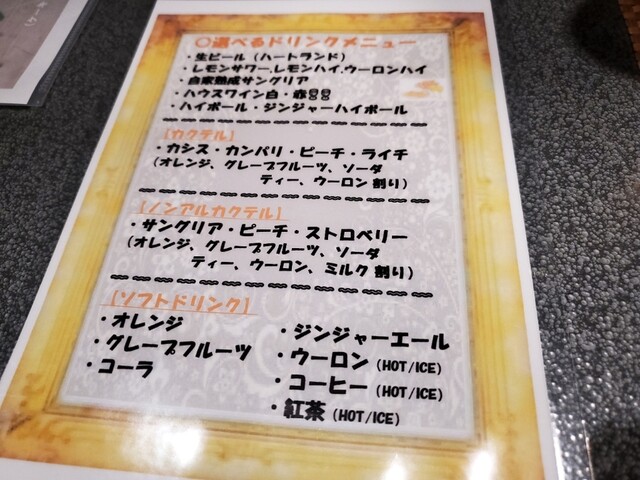 〇選べるドリンクメニュー
・生ビール（ハートランド）
・レモンサワー,レモンハイ,ウーロンハイ
・自家熟成サングリア
・ハウスワイン白・赤
・ハイボール・ジンジャーハイボール
【カクテル】
・カシス・カンパリ・ピーチ・ライチ
（オレンジ、グレープフルーツ、ソーダ
ティー、ウーロン 割り）
【ノンアルカクテル】
・サングリア・ピーチ・ストロベリー
（オレンジ、グレープフルーツ、ソーダ
ティー、ウーロン、ミルク 割り）
【ソフトドリンク】
・オレンジ
・グレープフルーツ
・コーラ
・ジンジャーエール
・ウーロン（HOT/ICE）
・コーヒー（HOT/ICE）
・紅茶（HOT/ICE）